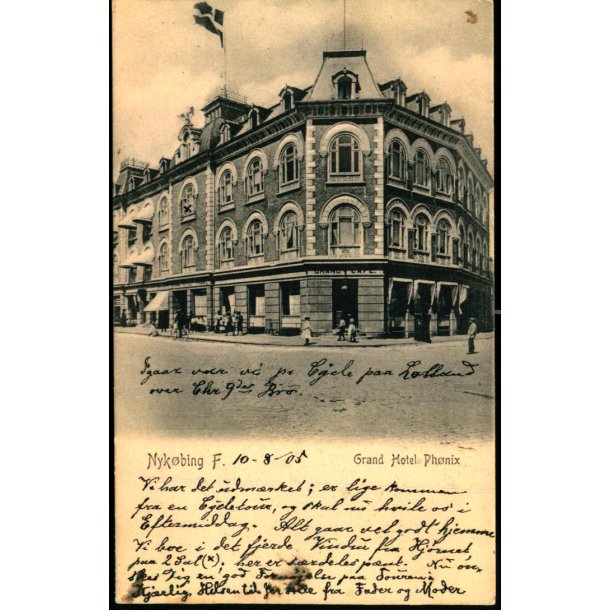 GRAND CAFÉ
Igaar var vi pr Cycle paa Lolland
over Chr 9des Bro.
Nykøbing F. 10-8/05 Grand Hotel Phønix
Vi har det udmærket; er lige kommen
fra en Cycletour, og skal nu hvile os i
Eftermiddag. Alt gaar vel godt hjemme
Vi boe i det fjerde Vindu fra Hjørnet
paa 2 Sal (x), her er særdeles pænt. Nu øn-
skes Dig en god Fornøjelse paa
Kjærlig Hilsen til fra Fader og Moder